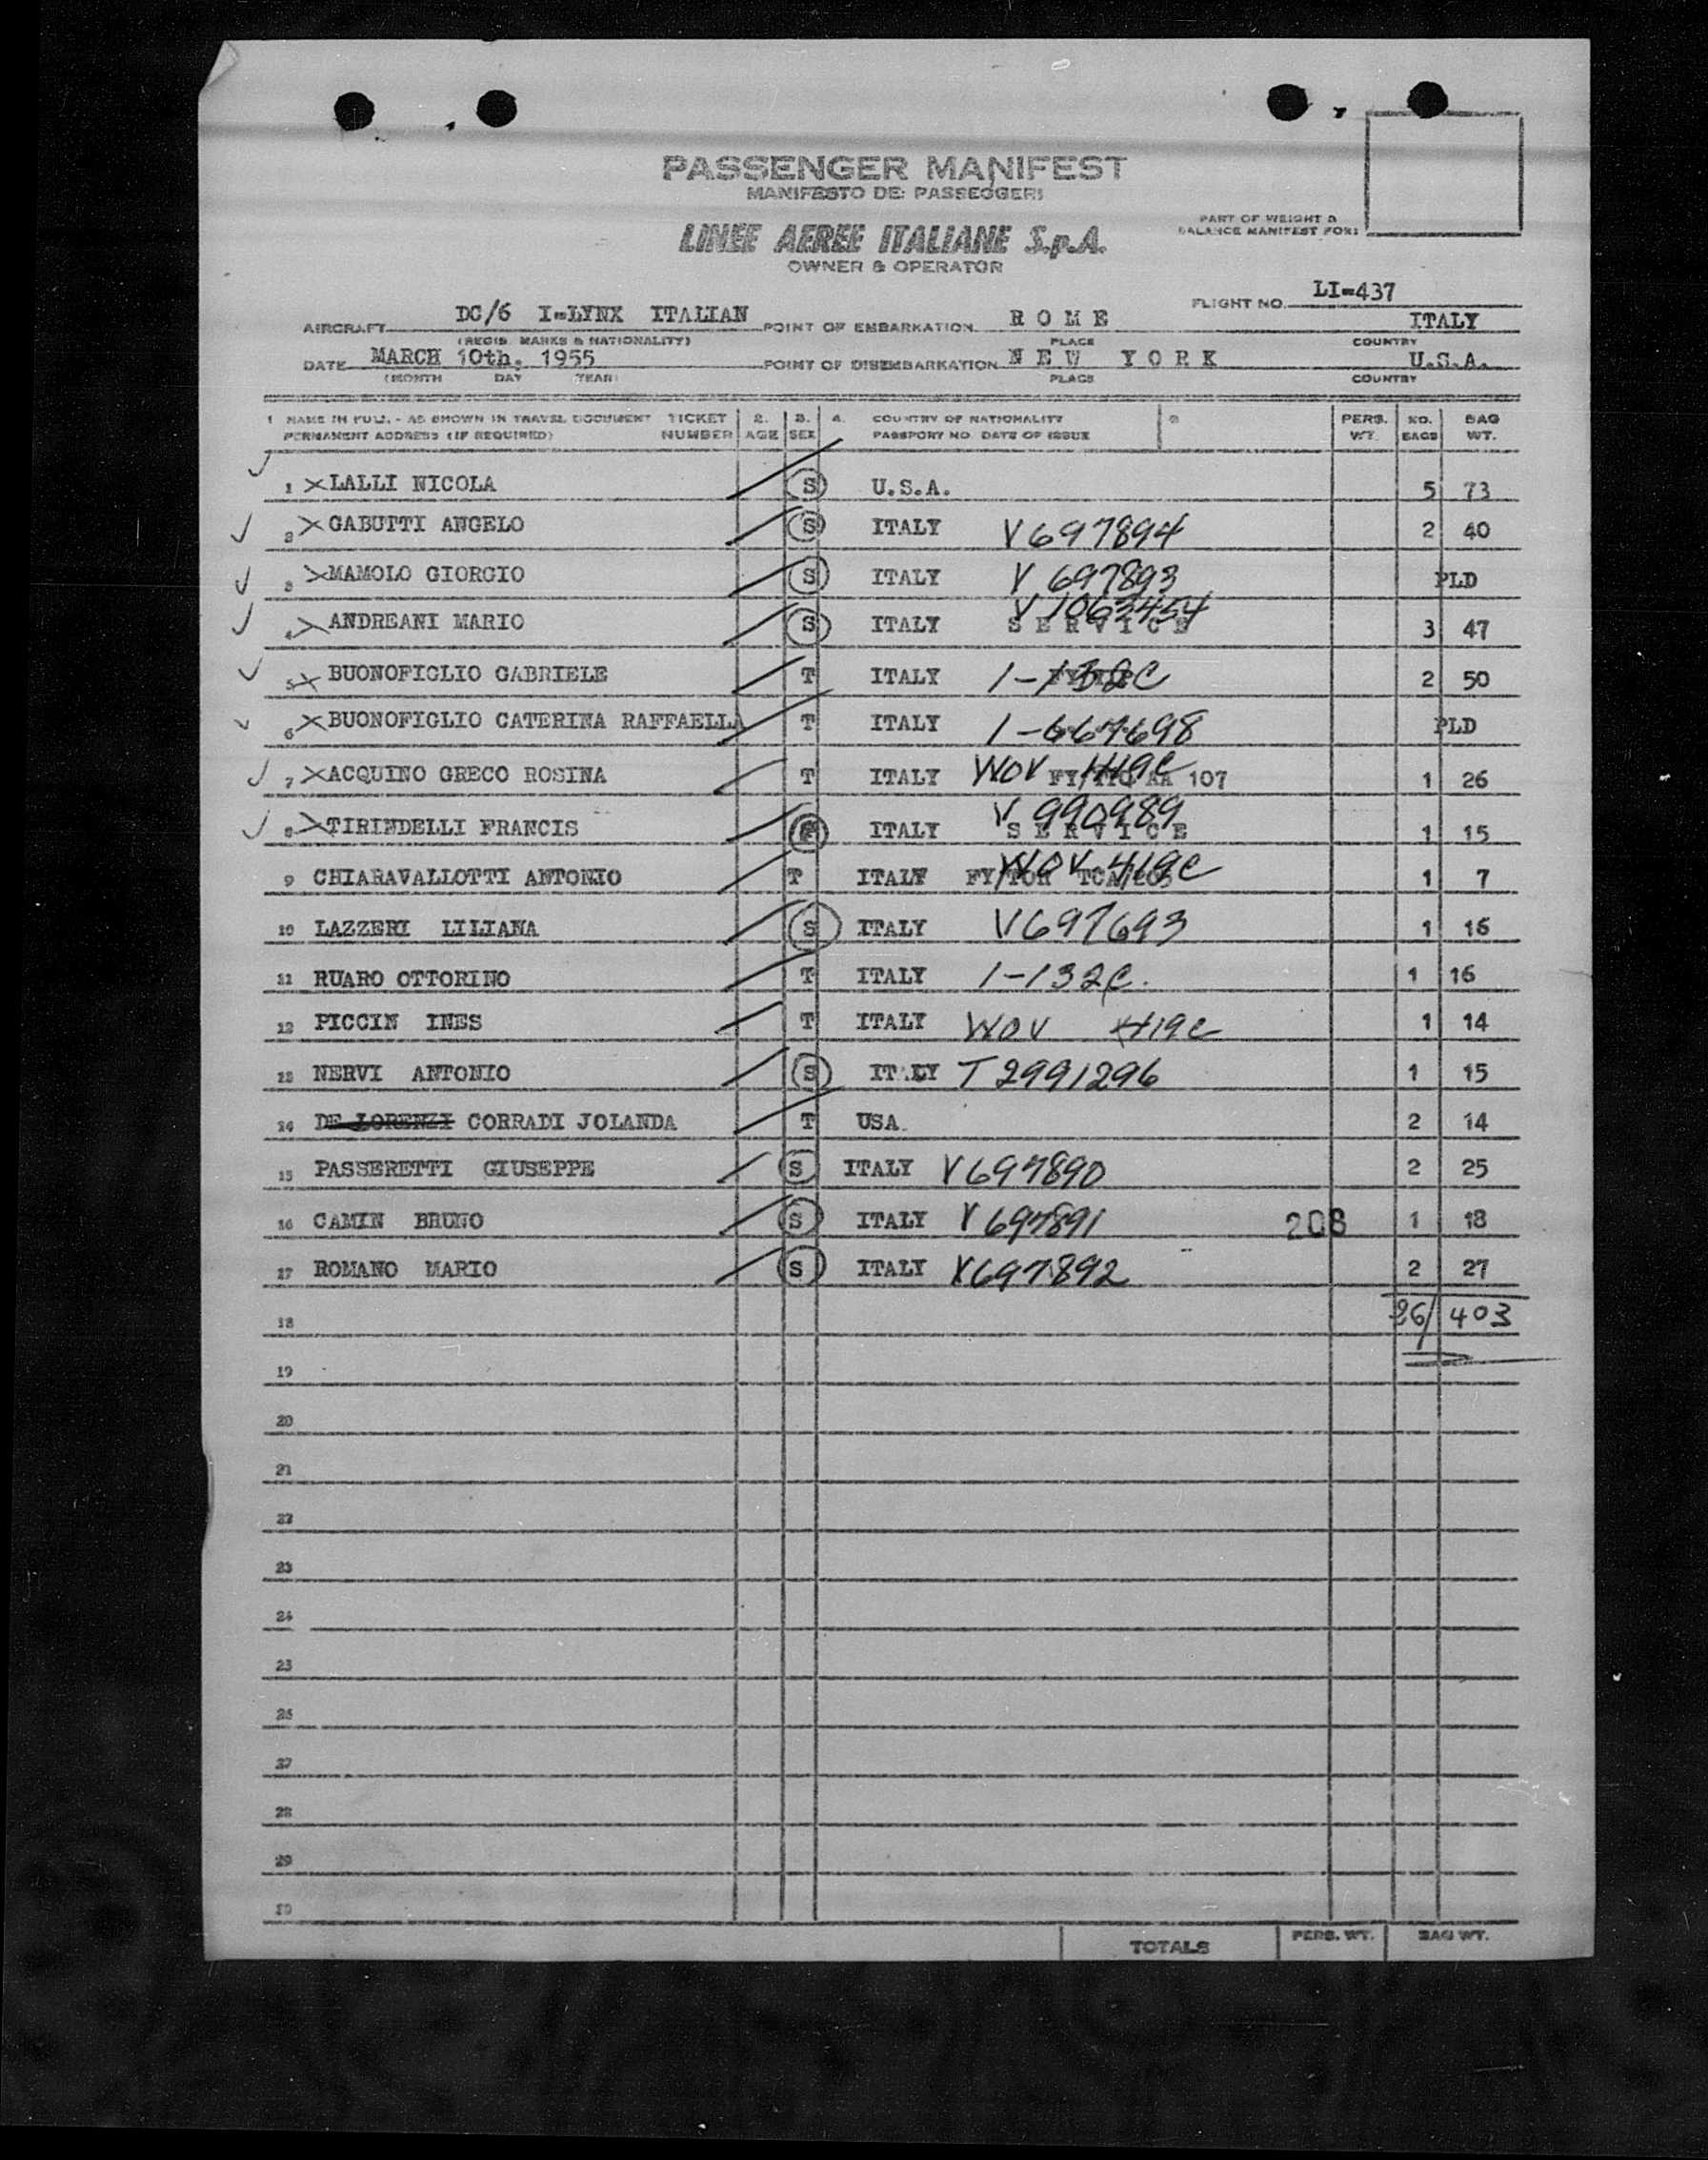 PASSENGER MANIFEST
MANIFESTO DEI PASSEGGERI
LINEE AEREE ITALIANE S.p.A.
OWNER & OPERATOR
PART OF WEIGHT &
BALANCE MANIFEST FOR:
FLIGHT NO. LI-437
AIRCRAFT DC/6 I-LYNX ITALIAN POINT OF EMBARKATION R O M E ITALY
(REGIS. MARKS & NATIONALITY) PLACE COUNTRY
DATE MARCH 10th, 1955 POINT OF DISEMBARKATION N E W Y O R K U.S.A.
(MONTH DAY YEAR) PLACE COUNTRY
1 NAME IN FULL - AS SHOWN IN TRAVEL DOCUMENT TICKET 2. 3. 4. COUNTRY OF NATIONALITY PERS. NO. BAG
PERMANENT ADDRESS (IF REQUIRED) NUMBER AGE SEX PASSPORT NO. DATE OF ISSUE WT. BAGS WT.
1 LALLI NICOLA S U.S.A. 5 73
2 GABUTTI ANGELO S ITALY V697894 2 40
3 MAMOLO GIORGIO S ITALY V 697893 PLD
4 ANDREANI MARIO S ITALY V 1063454 S E R V I C E 3 47
5 BUONOFIGLIO GABRIELE T ITALY 1-132C 2 50
6 BUONOFIGLIO CATERINA RAFFAELLA T ITALY 1-667698 PLD
7 ACQUINO GRECO ROSINA T ITALY WOV 419C 107 1 26
8 TIRINDELLI FRANCIS ITALY V 990989 S E R V I C E 1 15
9 CHIARAVALLOTTI ANTONIO T ITALY WOV 419C 1 7
10 LAZZERI LILIANA S ITALY V697693 1 16
11 RUARO OTTORINO T ITALY 1-132C. 1 16
12 PICCIN INES T ITALY WOV 419C 1 14
13 NERVI ANTONIO S ITALY T2991296 1 15
14 DE LORENZI CORRADI JOLANDA T USA. 2 14
15 PASSERETTI GIUSEPPE S ITALY V697890 2 25
16 CAMIN BRUNO S ITALY V697891 208 1 18
17 ROMANO MARIO S ITALY V697892 2 27
18 26/ 403
19
20
21
22
23
24
25
26
27
28
29
30
TOTALS PERS. WT. BAG WT.